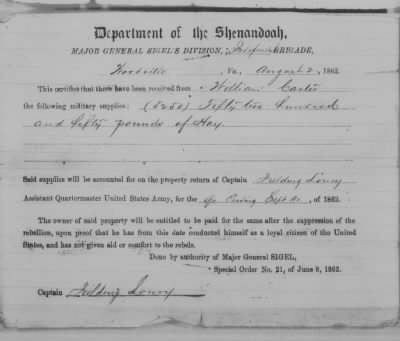 Department of the Shenandoah,
MAJOR GENERAL SIGEL'S DIVISION, BRIGADE,
Woodville Va., August 2, 1862.
This certifies that there have been received from William Carter
the following military supplies: (5250) Fifty two hundred
and fifty pounds of Hay
Said supplies will be accounted for on the property return of Captain Fielding Lowry
Assistant Quartermaster United States Army, for the Qr Ending Sept 30, of 1862.
The owner of said property will be entitled to be paid for the same after the suppression of the
rebellion, upon proof that he has from this date conducted himself as a loyal citizen of the United
States, and has not given aid or comfort to the rebels.
Done by authority of Major General SIGEL,
Special Order No. 21, of June 8, 1862.
Captain Fielding Lowry